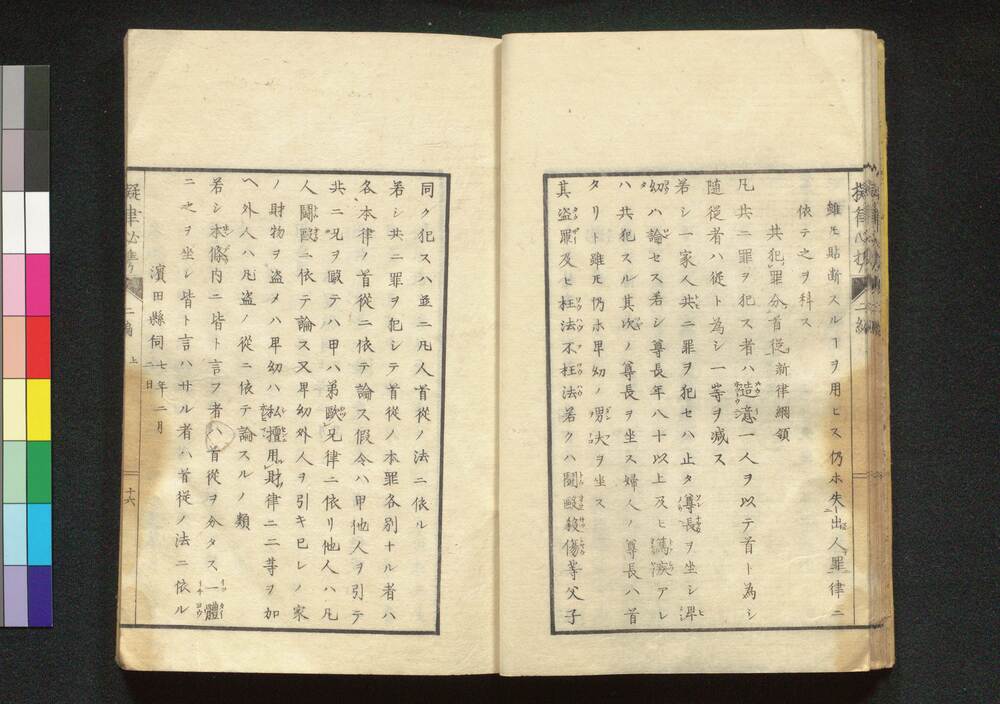 雖モ贖断スルヿヲ用ヒス仍ホ失出入人罪律ニ
依テ之ヲ科ス
共犯罪分首従 新律綱領
凡共ニ罪ヲ犯ス者ハ造意一人ヲ以テ首ト為シ
随従者ハ従ト為シ一等ヲ减ス
若シ一家人共ニ罪ヲ犯セハ止タ尊長ヲ坐シ卑
幼ハ論セス若シ尊長年八十以上及ヒ篤疾アレ
ハ共犯スル其次ノ尊長ヲ坐ス婦人ノ尊長ハ首
タリト雖モ仍ホ卑幼ノ男夫ヲ坐ス
其盗罪及ヒ枉法不枉法若クハ闘毆殺傷等父子
同ク犯スハ並ニ凡人首従ノ法ニ依ル
若シ共ニ罪ヲ犯シテ首従ノ本罪各別ナル者ハ
各本律ノ首従ニ依テ論ス假令ハ甲他人ヲ引テ
共ニ兄ヲ毆テハ甲ハ弟毆兄律ニ依リ他人ハ凡
人闘毆ニ依テ論ス又卑幼外人ヲ引キ己レノ家
ノ財物ヲ盗メハ卑幼ハ私擅用財律ニ二等ヲ加
ヘ外人ハ凡盗ノ従ニ依テ論スルノ類
若シ本條内ニ皆ト言フ者ハ首従ヲ分タス一體
ニ之ヲ坐シ皆ト言ハサル者ハ首従ノ法ニ依ル
濱田縣伺 七年二月二日
二編 上
十六